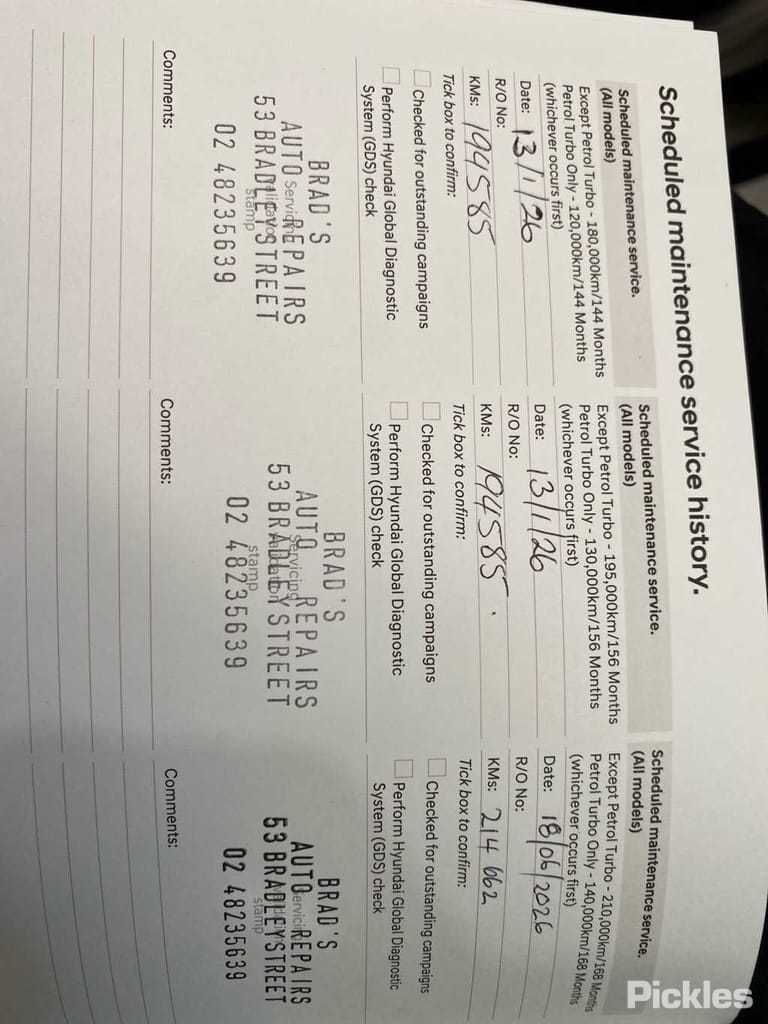 Scheduled maintenance service history.
Scheduled maintenance service.
(All models)
Except Petrol Turbo - 180,000km/144 Months
Petrol Turbo Only - 120,000km/144 Months
(whichever occurs first)
Date: 13/1/26
R/O No:
KMs: 194585
Tick box to confirm:
Checked for outstanding campaigns
Perform Hyundai Global Diagnostic
System (GDS) check
BRAD'S
AUTO REPAIRS
53 BRADLEY STREET
02 48235639
Servicing
Validation
stamp
Comments:
Scheduled maintenance service.
(All models)
Except Petrol Turbo - 195,000km/156 Months
Petrol Turbo Only - 130,000km/156 Months
(whichever occurs first)
Date: 13/1/26
R/O No:
KMs: 194585.
Tick box to confirm:
Checked for outstanding campaigns
Perform Hyundai Global Diagnostic
System (GDS) check
BRAD'S
AUTO REPAIRS
53 BRADLEY STREET
02 48235639
Servicing
Validation
stamp
Comments:
Scheduled maintenance service.
(All models)
Except Petrol Turbo - 210,000km/168 Months
Petrol Turbo Only - 140,000km/168 Months
(whichever occurs first)
Date: 18/06/2026
R/O No:
KMs: 214 662
Tick box to confirm:
Checked for outstanding campaigns
Perform Hyundai Global Diagnostic
System (GDS) check
BRAD'S
AUTO REPAIRS
53 BRADLEY STREET
02 48235639
Servicing
stamp
Comments:
Pickles